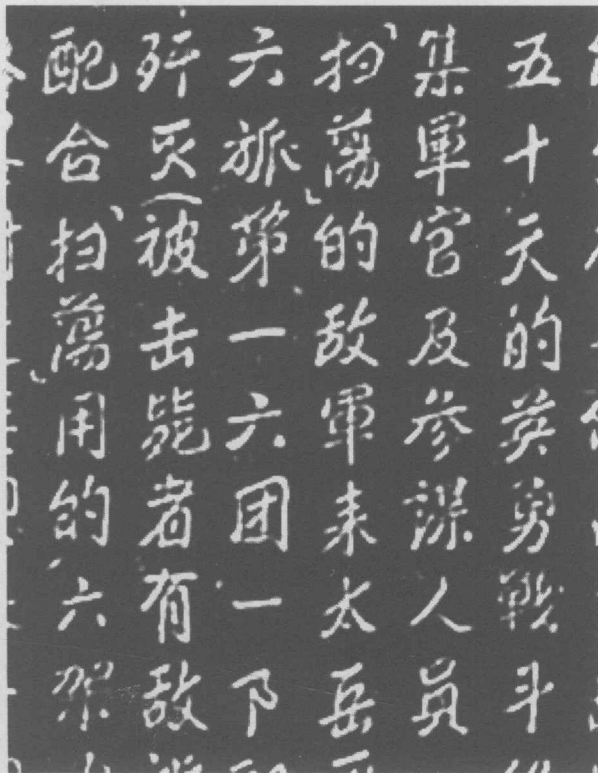 五十天的英勇戰斗
集軍官及参謀人員
扫蕩」的敌軍来太岳
六旅第一六团一下
歼灭（被击毙者有敌
配合「扫蕩」用的六架